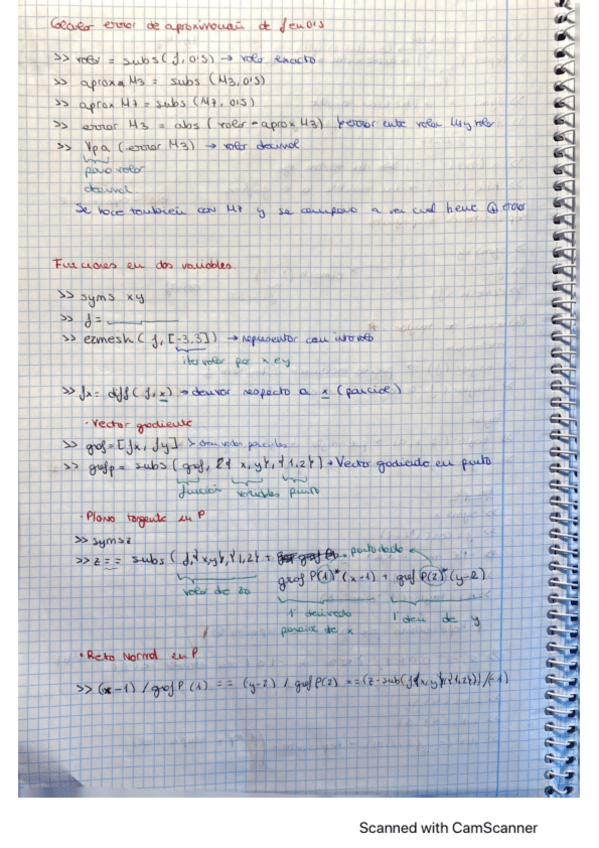 Calcular error de aproximación de f en 0's
>> valor = subs(f, 0's) → valor exacto
>> aprox M3 = subs (M3, 0's)
>> aprox M7 = subs (M7, 0's)
>> error M3 = abs (valor - aprox M3) error entre valor M3 y valor
>> Vpa (error M3) → valor decimal
para valor
decimal
Se hace también con M7 y se compara a ver cual tiene error
Funciones en dos variables
>> syms x y
>> f =
>> ezmesh (f, [-3,3]) → representar con intervalo
intervalo por x e y
>> fx = diff(f, x) → derivar respecto a x (parcial)
· Vector gradiente
>> graf = [fx, fy] derivadas parciales
>> grafp = subs (graf, {x, y}, {1,2}) → Vector gradiente en punto
función variables punto
· Plano tangente en P
>> syms z
>> z == subs (f, {x,y}, {1,2} + punto dado
graf P(1)*(x-1) + graf P(2)*(y-2)
valor de z0
1ª derivada
parcial de x
1ª deriv de y
· Recta Normal en P
>> (x-1) / graf P (1) == (y-2) / graf P(2) == (z-sub(f{x,y},{1,2})) /(-1)
Scanned with CamScanner